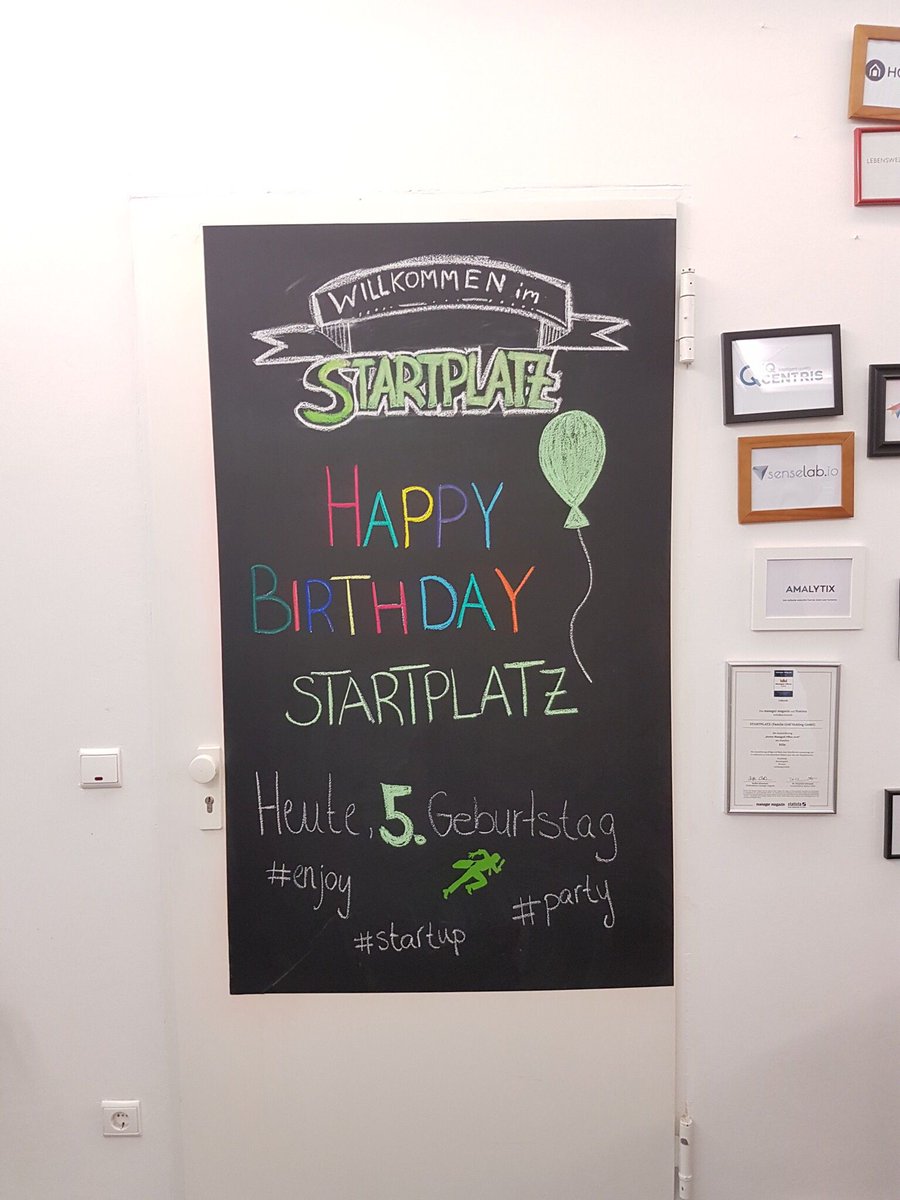 WILLKOMMEN im
STARTPLATZ
HAPPY
BIRTHDAY
STARTPLATZ
Heute, 5. Geburtstag
#enjoy
#party
#startup
LEBENSWE
QCENTRIS
senselab.io
AMALYTIX
manager magazin statista